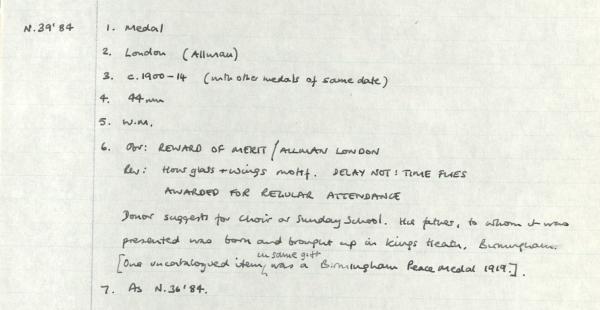 N.39'84 1. Medal
2. London (Allman)
3. c.1900-14 (with other medals of same date)
4. 44mm
5. W.M.
6. Obv: REWARD OF MERIT / ALLMAN LONDON
Rev: Hour glass + wings motif. DELAY NOT! TIME FLIES
AWARDED FOR REGULAR ATTENDANCE
Donor suggests for choir or Sunday School. His father, to whom it was
presented was born and brought up in Kings Heath, Birmingham.
in same gift
[One uncatalogued item, was a Birmingham Peace Medal 1919.].
7. As N.36'84.